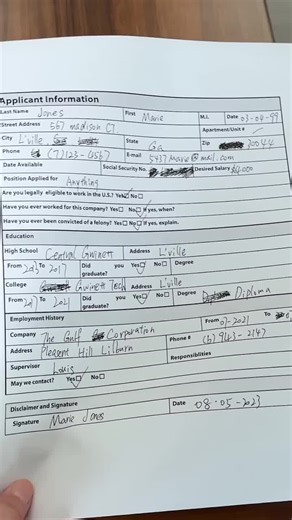 Applicant Information
Last Name Jones First Marie M.I. Date 03-04-99
Street Address 567 madison CT Apartment/Unit #
City L'ville State Ga Zip 20044
Phone (7)123-0567 E-mail 5437Marie@mail.com
Date Available Social Security No. Desired Salary
Position Applied for Anything
Are you legally eligible to work in the U.S.? Yes No
Have you ever worked for this company? Yes No If yes, when?
Have you ever been convicted of a felony? Yes No If yes, explain.
Education
High School Central Gwinett Address L'ville
From 2013 To 2017 Did you graduate? Yes No Degree
College Gwinett Tech Address L'ville
From 2017 2021 Did you graduate? Yes No Degree Diploma
Employment History
Company The Gulf Corporation From 07-2021 To
Address Pleasent Hill Lilburn Phone # (6) 943-2147
Supervisor Louis Responsibilities
May we contact? Yes No
Disclaimer and Signature
Signature Marie Jones Date 08-05-2023